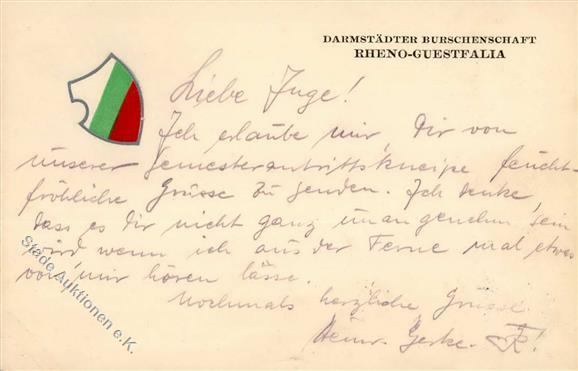 DARMSTÄDTER BURSCHENSCHAFT
RHENO-GUESTFALIA
Liebe Inge!
Ich erlaube mir, Dir von
unserer Semesterantrittskneipe feucht-
fröhliche Grüsse zu senden. Ich denke,
dass es Dir nicht ganz unangenehm sein
wird wenn ich aus der Ferne mal etwas
von mir hören lasse.
Nochmals herzliche Grüsse
Heinr. Gerke.
Stade Auktionen e.K.